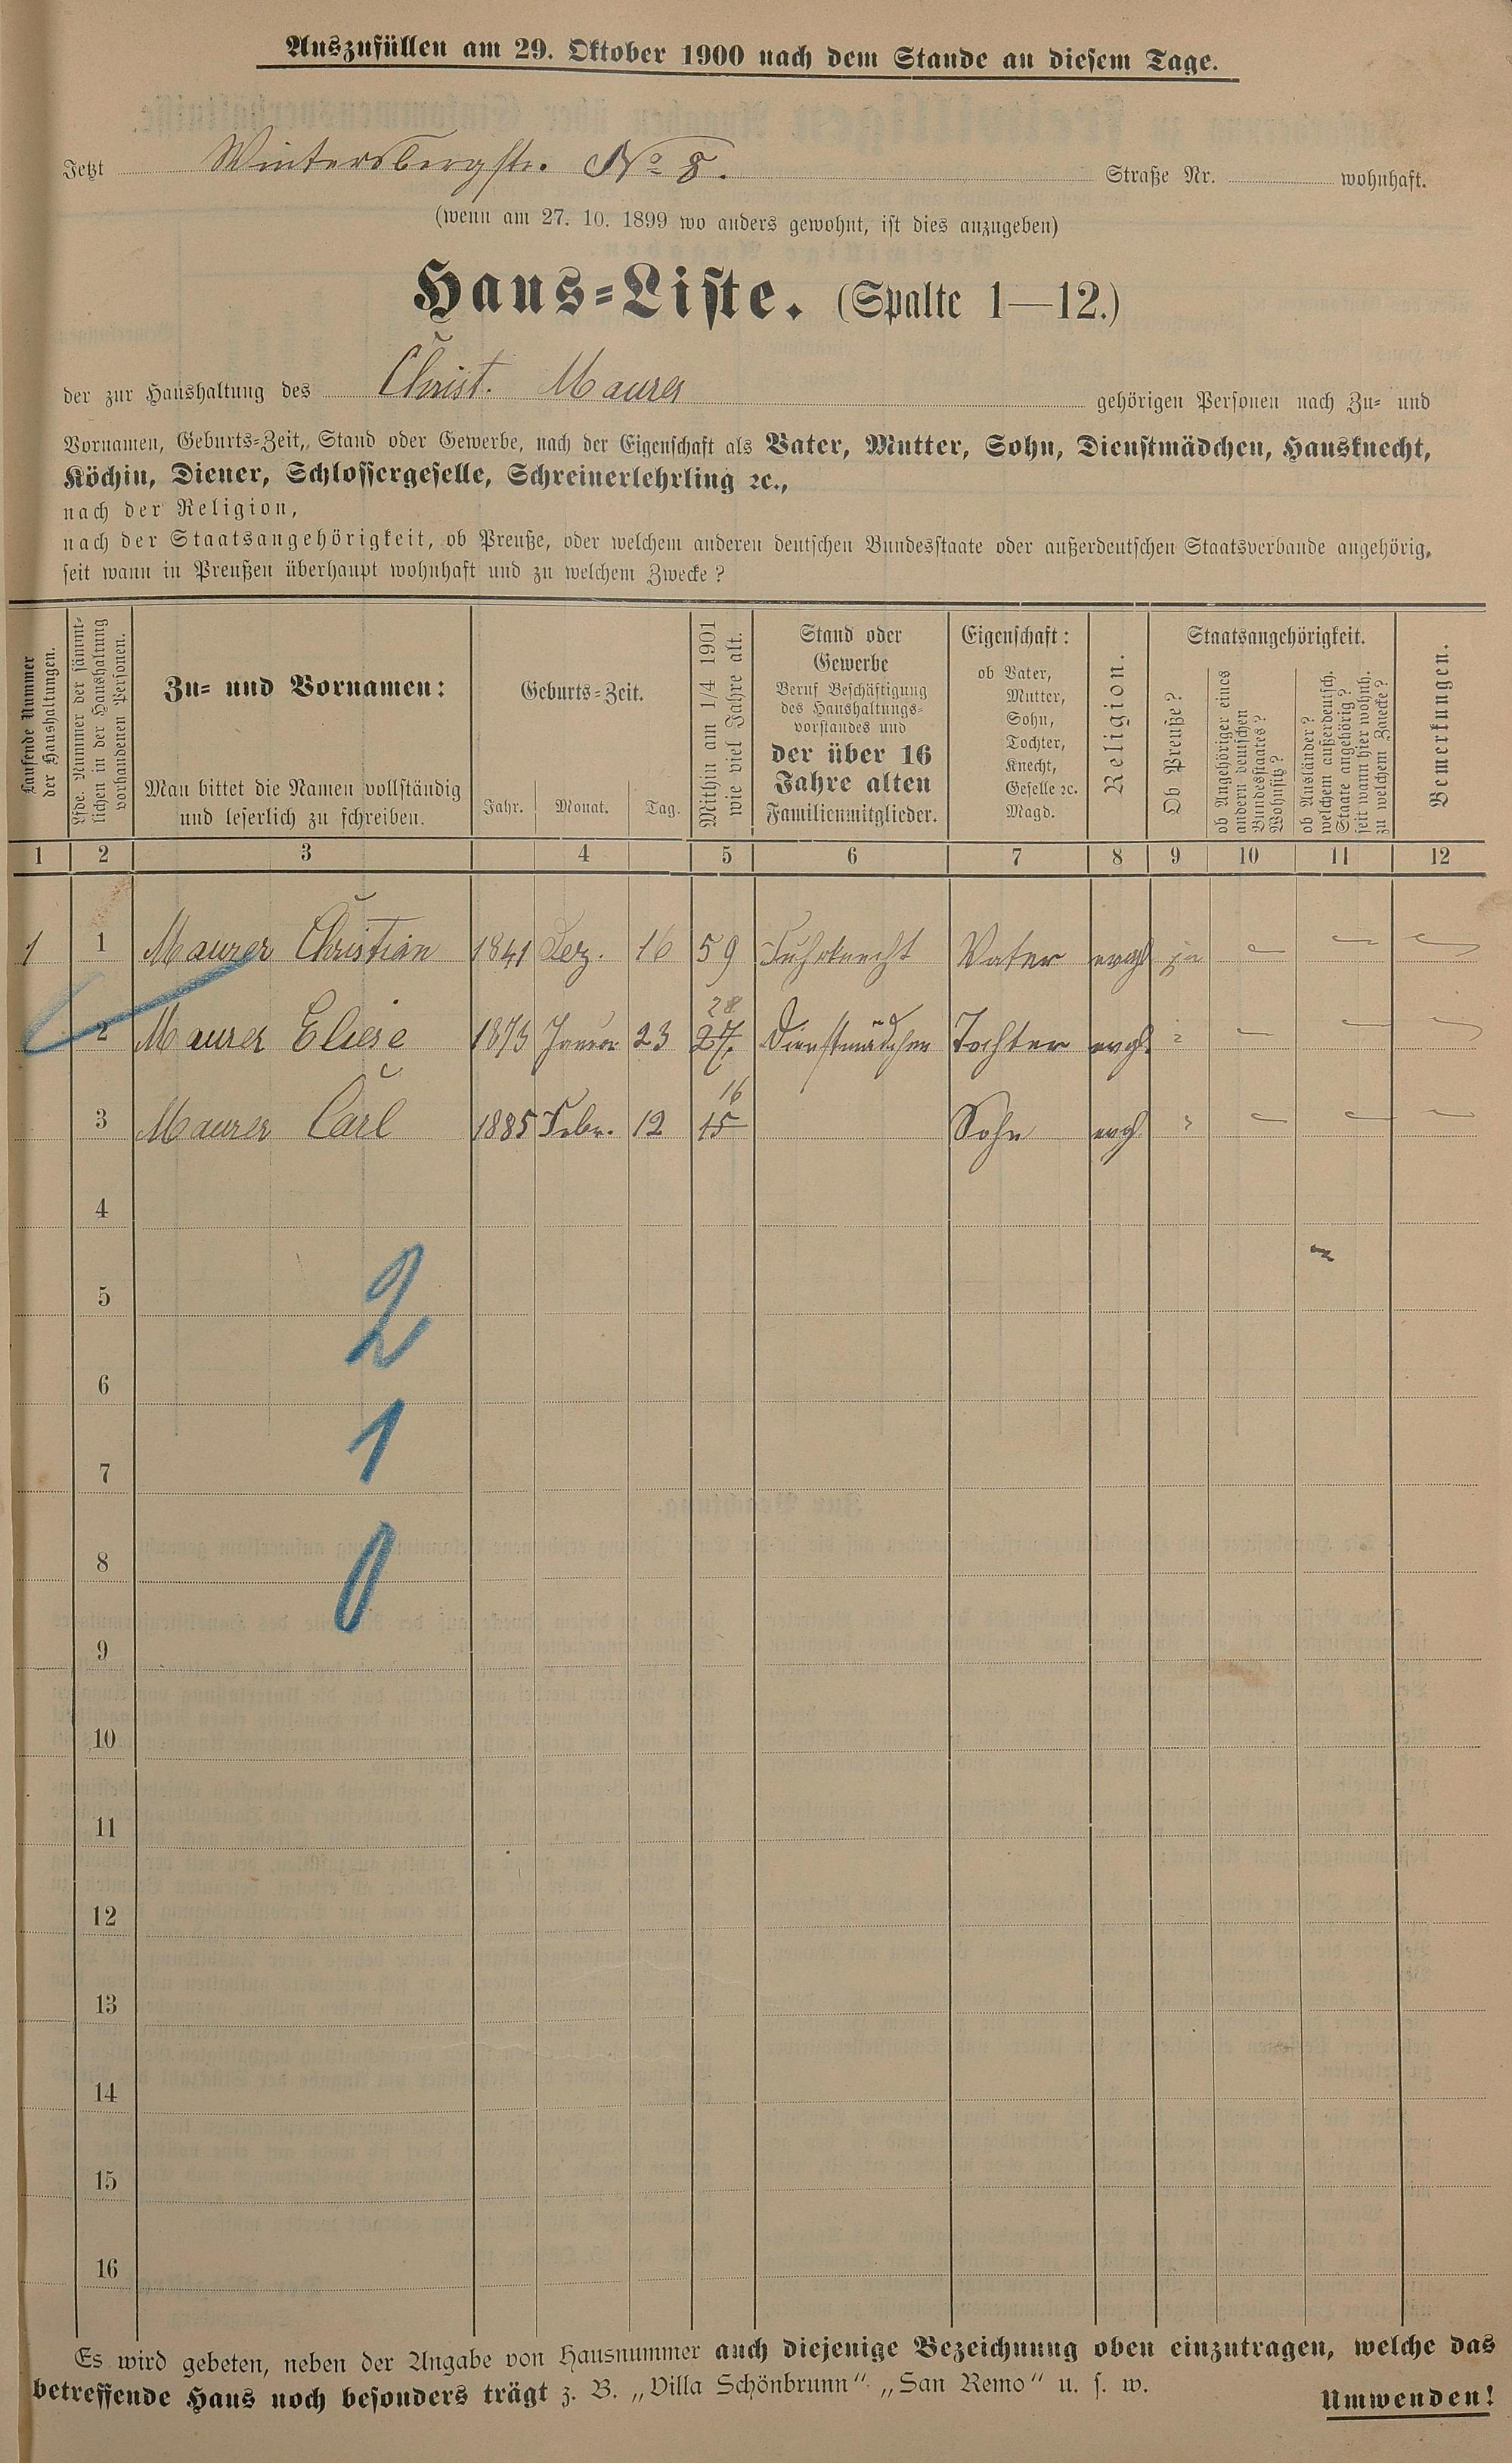 Auszufüllen am 29. Oktober 1900 nach dem Stande an diesem Tage.
Jetzt Wintersbergstr. No 8. Straße Nr. wohnhaft.
(wenn am 27. 10. 1899 wo anders gewohnt, ist dies anzugeben)
Haus-Liste. (Spalte 1—12.)
der zur Haushaltung des Christ. Maurer gehörigen Personen nach Zu- und
Vornamen, Geburts-Zeit, Stand oder Gewerbe, nach der Eigenschaft als Vater, Mutter, Sohn, Dienstmädchen, Hausknecht,
Köchin, Diener, Schlossergeselle, Schreinerlehrling ꝛc.,
nach der Religion,
nach der Staatsangehörigkeit, ob Preuße, oder welchem anderen deutschen Bundesstaate oder außerdeutschen Staatsverbande angehörig,
seit wann in Preußen überhaupt wohnhaft und zu welchem Zwecke?
Laufende Nummer
der Haushaltungen.
Lfde. Nummer der sämmt-
lichen in der Haushaltung
vorhandenen Personen.
Zu- und Vornamen:
Man bittet die Namen vollständig
und leserlich zu schreiben.
Geburts-Zeit.
Jahr. Monat. Tag.
Mithin am 1/4 1901
wie viel Jahre alt.
Stand oder
Gewerbe
Beruf Beschäftigung
des Haushaltungs-
vorstandes und
der über 16
Jahre alten
Familienmitglieder.
Eigenschaft:
ob Vater,
Mutter,
Sohn,
Tochter,
Knecht,
Geselle ꝛc.
Magd.
Religion.
Staatsangehörigkeit.
Ob Preuße?
ob Angehöriger eines
andern deutschen
Bundesstaates?
Wohnsitz?
ob Ausländer?
welchem außerdeutsch.
Staate angehörig?
seit wann hier wohnh.
zu welchem Zwecke?
Bemerkungen.
1 2 3 4 5 6 7 8 9 10 11 12
1 1 Maurer Christian 1841 Dez. 16 59 Fuhrknecht Vater evgl ja — — —
28
2 Maurer Eliese 1873 Januar 23 27 Dienstmädchen Tochter evgl. " — — —
16
3 Maurer Carl 1885 Febr. 12 15 Sohn evgl " — — —
4
5
2
6
7
1
8
0
9
10
11
12
13
14
15
16
Es wird gebeten, neben der Angabe von Hausnummer auch diejenige Bezeichnung oben einzutragen, welche das
betreffende Haus noch besonders trägt z. B. „Villa Schönbrunn" „San Remo" u. s. w.
Umwenden!